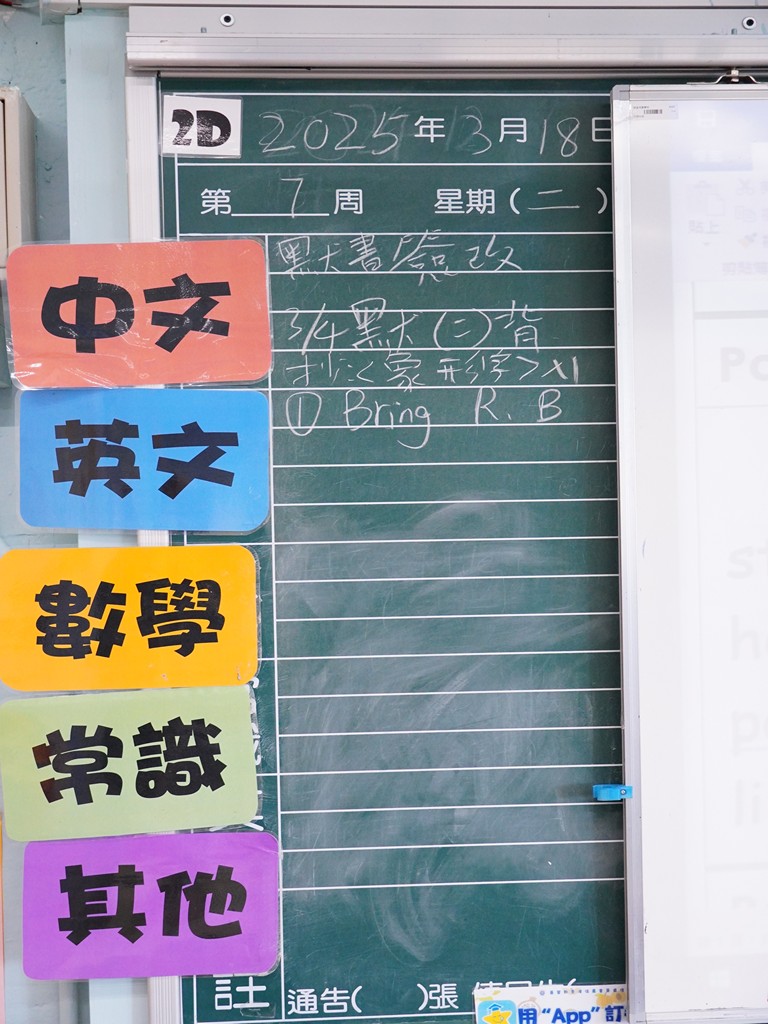 2D 2025年3月18日
第 7 周 星期(二)
默書簽改
中文
3/4默(二)背
抄<象形字>x1
① Bring R. B
英文
數學
常識
其他
註 通告( )張
用“App”訂